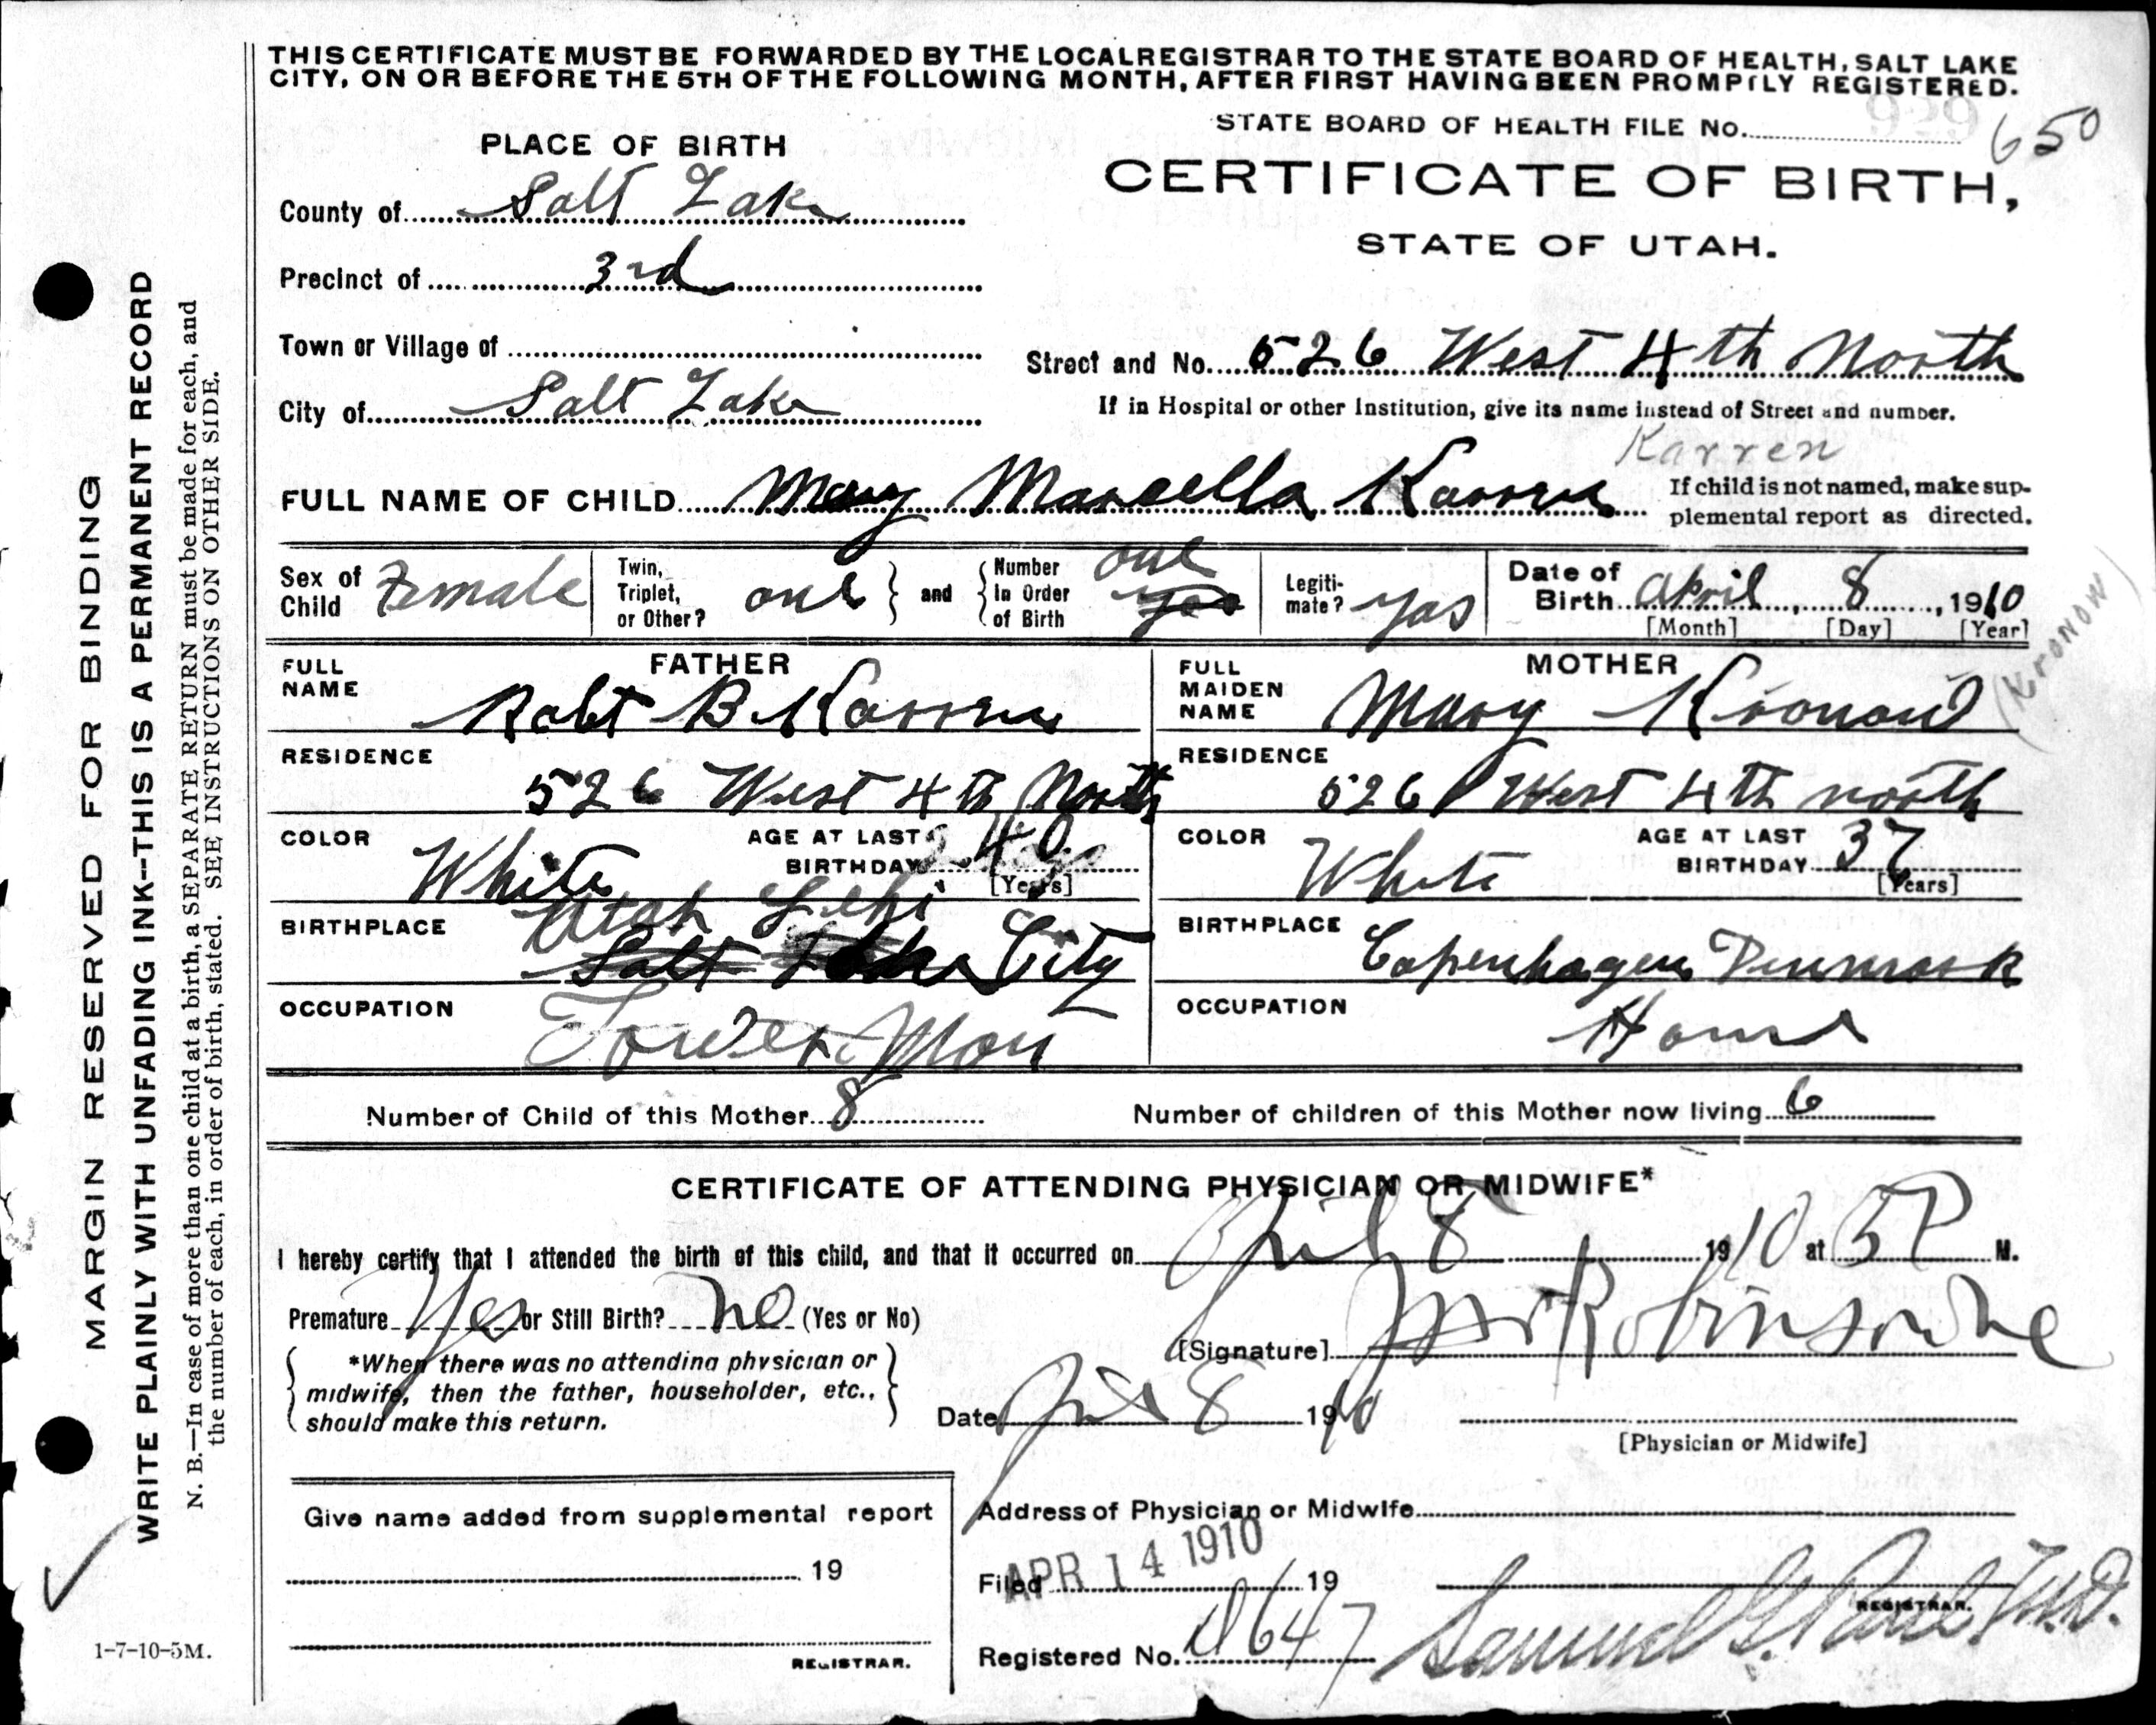 THIS CERTIFICATE MUST BE FORWARDED BY THE LOCAL REGISTRAR TO THE STATE BOARD OF HEALTH, SALT LAKE
CITY, ON OR BEFORE THE 5TH OF THE FOLLOWING MONTH, AFTER FIRST HAVING BEEN PROMPTLY REGISTERED.
STATE BOARD OF HEALTH FILE No. 650
929
PLACE OF BIRTH
CERTIFICATE OF BIRTH,
STATE OF UTAH.
County of Salt Lake
Precinct of 3rd
Town or Village of
Street and No. 526 West 4th North
City of Salt Lake
If in Hospital or other Institution, give its name instead of Street and number.
Karren
FULL NAME OF CHILD Mary Marcella Karren
If child is not named, make sup-
plemental report as directed.
Sex of Child Female
Twin, Triplet, or Other? one
and
Number In Order of Birth one yes
Legiti-mate? yas
Date of Birth April, 8, 1910
[Month] [Day] [Year]
FATHER
FULL NAME Robt B. Karren
RESIDENCE
526 West 4th North
COLOR White
AGE AT LAST BIRTHDAY 40
[Years]
BIRTHPLACE Utah Lehi
Salt Lake City
OCCUPATION Tower Man
MOTHER
FULL MAIDEN NAME Mary Kronow
(KRONOW)
RESIDENCE
526 West 4th north
COLOR White
AGE AT LAST BIRTHDAY 37
[Years]
BIRTHPLACE Copenhagen Denmark
OCCUPATION Home
Number of Child of this Mother 8
Number of children of this Mother now living 6
CERTIFICATE OF ATTENDING PHYSICIAN OR MIDWIFE*
I hereby certify that I attended the birth of this child, and that it occurred on April 8 1910 at 5 P M.
Premature Yes or Still Birth? no (Yes or No)
[Signature]
*When there was no attending physician or
midwife, then the father, householder, etc.,
should make this return.
Date 8 1910
[Physician or Midwife]
Give name added from supplemental report
19
REGISTRAR.
Address of Physician or Midwife
Filed APR 14 1910 19
REGISTRAR.
Registered No. 647
Samuel G. Paul M.D.
MARGIN RESERVED FOR BINDING
WRITE PLAINLY WITH UNFADING INK--THIS IS A PERMANENT RECORD
N. B.—In case of more than one child at a birth, a SEPARATE RETURN must be made for each, and
the number of each, in order of birth, stated. SEE INSTRUCTIONS ON OTHER SIDE.
1-7-10-5M.